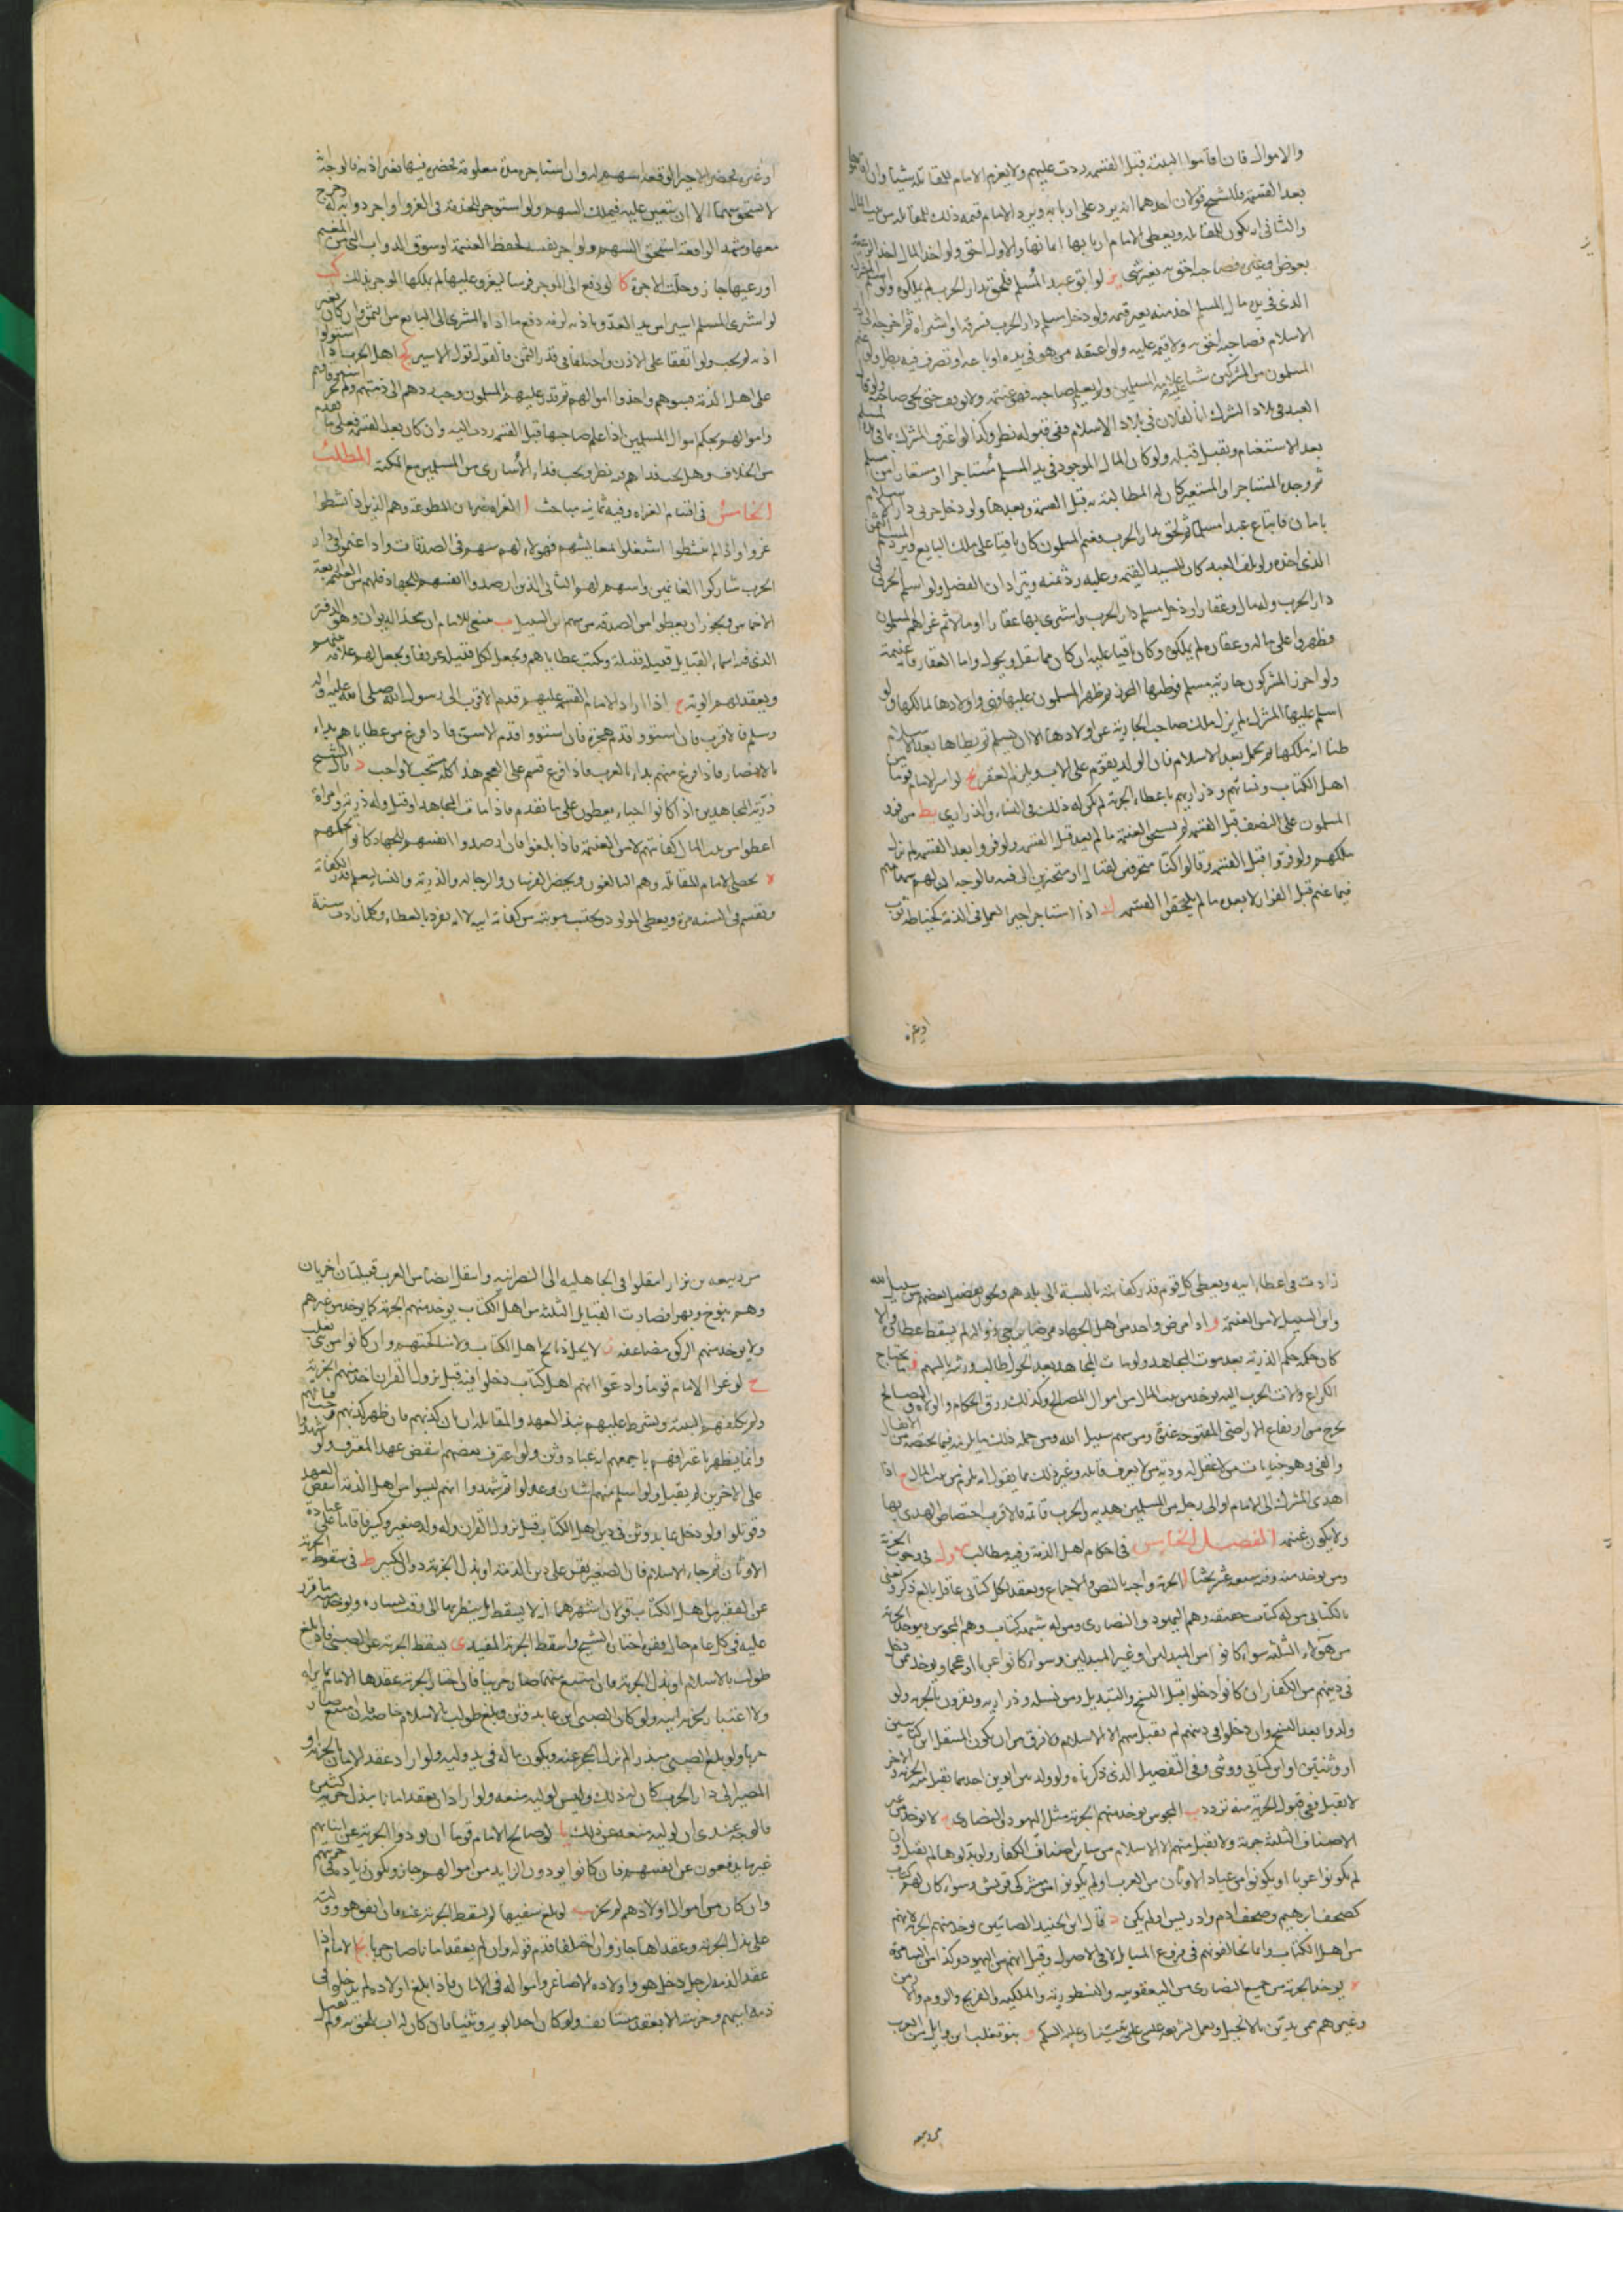 والاموال فان اقاموا البينة قبل القسمة ردت عليهم ولا يغرم الامام للمقاتلة شيئا وان اقاموها
بعد القسمة فللشيخ قولان احدهما انه يرد على اربابه ويرد الامام قيمة ذلك للمقاتلة من بيت المال
والثانى ان يكون للمقاتلة ويعطى الامام اربابها اثمانها والاول احق ولو اخذ المال احد الرعية
بعوض او بغيره فصاحبه احق به بغير شى يز لو ابق عبد المسلم فلحق بدار الحرب لم يملكوه ولو اسلم المشرك
الذى فى يده مال المسلم اخذ منه بغير قيمة ولو دخل مسلم دار الحرب فسرقه او اشتراه ثم اخرجه الى
الاسلام فصاحبه احق به ولا قيمة عليه ولو اعتقه من هو فى يده او باعه او تصرف فيه بطل ولو غنم
المسلمون من المشركين شيئا عليه علامة المسلمين ولم يعلم صاحبه فهو غنيمة ولا يوقف حتى يجى صاحبه ولو قال
العبد فى بلاد الشرك انا لفلان فى بلاد الاسلام ففى قبوله نظر وكذا لو اعترف المشرك بما فى يده لمسلم
بعد الاستغنام ويقبل قبله ولو كان المال الموجود فى يد المسلم مستاجرا او مستعارا من مسلم
ثم وجده المستاجر او المستعير كان له المطالبة به قبل القسمة وبعدها ولو دخل حربى دار الاسلام
بامان فابتاع عبدا مسلما ثم لحق بدار الحرب فغنمه المسلمون كان باقيا على ملك البايع ويرد المسلم الثمن
الذى اخذه ولو تلف العبد كان للسيد القيمة وعليه رد ثمنه ويترادان الفضل ولو اسلم الحربى فى
دار الحرب وله مال وعقار او دخل مسلم دار الحرب واشترى بها عقارا او مالا ثم غزاهم المسلمون
فظهروا على ماله وعقاره لم يملكوه وكان باقيا عليه ان كان مما ينقل ويحول واما العقار فانه غنيمة
ولو احرز المشركون جارية مسلم فوطئها المحرز ثم ظهر المسلمون عليها فهى واولادها لمالكها ولو
اسلم عليها المشرك لم يزل ملك صاحب الجارية عن اولادها الا ان يسلم ثم يطاها بعد الاسلام
ظنا انه ملكها ثم تحمل بعد الاسلام فان الولد يقوم على الاب ويلزمه العقر يح لو اسر الامام قوما من
اهل الكتاب ونسائهم وذراريهم باعطاء الجزية لم يكن له ذلك فى النساء والذرارى يط من فر من
المسلمون على النصف قبل القسمة لم يستحق الغنيمة ما لم يعد قبل القسمة ولو فروا بعد القسمة لم يزل
ملكهم ولو فروا قبل القسمة وقالوا كنا متحرفين لقتال او متحيزين الى فئة فالوجه ان لهم سهامهم
فيما غنم قبل الفرار لا بعده ما لم يلحقوا القسمة ك اذا استاجر اجيرا للعمل فى الذمة كخياطة ثوب
او غيره
او غيره فحضر الاجير الوقعة اسهم له وان استاجره مدة معلومة فحضر فيها بغير اذنه فالوجه انه
لا يستحق سهما الا ان يتعين عليه فيملك السهم ولو استوجر للخدمة فى الغزو او اجر دوابه له وخرج
معها وشهد الواقعة استحق السهم ولو اجر نفسه لحفظ الغنيمة او سوق الدواب التى من المغنم
او رعيها جاز وحلت الاجرة كا لو دفع الى الموجر فرسا ليغزو عليها لم يملكها الموجر بذلك كب
لو اشترى المسلم اسيرا من يد العدو باذنه لزمه دفع ما اداه المشترى الى البايع من الثمن وان كان بغير
اذنه لم يجب ولو اتفقا على الاذن واختلفا فى قدر الثمن فالقول قول الاسير كج اهل الحرب اذا استولوا
على اهل الذمة فسبوهم واخذوا اموالهم ثم قدر عليهم المسلمون وجب ردهم الى ذمتهم ولم يجز استرقاقهم
واموالهم بحكم اموال المسلمين اذا علم صاحبها قبل القسمة ردت اليه وان كان بعد القسمة فعلى ما تقدم
من الخلاف وهل يجب فداهم فيه نظر ويجب فداء الاسارى من المسلمين مع المكنة المطلب
الخامس فى اقسام الغزاة وفيه ثمانية مباحث ا الغزاة ضربان المطوعة وهم الذين اذا نشطوا
غزوا واذا لم ينشطوا اشتغلوا بمعايشهم فهولاء لهم سهم فى الصدقات واذا غنموا فى دار
الحرب شاركوا الغانمين واسهم لهم الثانى الذين ارصدوا انفسهم للجهاد فلهم من الغنيمة اربعة
الاخماس ويجوز ان يعطوا من الصدقة من سهم ابن السبيل ب ينبغى للامام ان يتخذ الديوان وهو الدفتر
الذى فيه اسماء القبايل قبيلة قبيلة وكتب عطاياهم ويجعل لكل قبيلة عريفا ويجعل لهم علامة بينهم
ويعقد لهم الوية ج اذا اراد الامام القسمة عليهم قدم الاقرب الى رسول الله صلى الله عليه واله
وسلم فالاقرب فان استووا قدم هجرة فان استووا قدم الاسن فاذا فرغ من عطاياهم بداء
بالانصار فاذا فرغ منهم بداء بالعرب فاذا فرغ قسم على العجم هذا كله مستحب لا واجب د قال الشيخ
ذرية المجاهدين اذا كانوا احياء يعطون على ما تقدم فاذا مات المجاهد او قتل وله ذرية وامراة
اعطوا من بيت المال كفايتهم لا من الغنيمة فاذا بلغوا فان ارصدوا انفسهم للجهاد كانوا بحكمهم
ه يحصى الامام المقاتلة وهم البالغون ويحصى الفرسان والرجالة والذرية والنساء ليعلم قدر الكفاية
ويقسم فى السنة مرة ويعطى المولود ويحتسب مؤنته من كفاية ابيه لا انه يفرد بالعطاء وكلما زادت سنة
زادت فى عطاء ابيه ويعطى كل قوم قدر كفايتهم بالنسبة الى بلدهم ويجوز تفضيل بعضهم من سبيل الله
وابن السبيل لا من الغنيمة و اذا مرض واحد من اهل الجهاد مرضا يرجى زواله لم يسقط عطاؤه والا
كان حكمه حكم الذرية بعد موت المجاهد ولو مات المجاهد بعد الحول طالب ورثته بالسهم ز ما يحتاج
الكراع والات الحرب اليه يوخذ من بيت المال من اموال المصالح وكذلك رزق الحكام والولاة والمصالح
يخرج من ارتفاع الاراضى المفتوحة عنوة ومن سهم سبيل الله ومن جملة ذلك ما يلزمه فيما يختصه من الانفال
والفى وهو جنايات من لا عقل له ودية من لا يعرف قاتله وغير ذلك مما يقول انه يلزم من بيت المال ح اذا
اهدى المشرك الى الامام او الى رجل من المسلمين هدية والحرب قائمة فالاقرب اختصاص المهدى بها
ولا يكون غنيمة الفصل الخامس فى احكام اهل الذمة وفيه مطالب الاول فى وجوب الجزية
ومن يوخذ منه وفيه سبعة عشر بحثا ا الجزية واجبة بالنص والاجماع ويعقد لكل كتابى عاقل بالغ ذكر ونعنى
بالكتابى من له كتاب حقيقة وهم اليهود والنصارى ومن له شبهة كتاب وهم المجوس فيوخذ الجزية
من هؤلاء الثلثة سواء كانوا من المبدلين او غير المبدلين وسواء كانوا عربا او عجما ويوخذ ممن دخل
فى دينهم من الكفار ان كانوا دخلوا قبل النسخ والتبديل ومن نسله وذراريه ويقرون بالجزية ولو
ولدوا بعد النسخ وان دخلوا فى دينهم لم يقبل منهم الا الاسلام ولا فرق بين ان يكون المنتقل ابن كتابيين
او وثنيين او ابن كتابى ووثنى وفى التفصيل الذى ذكرناه ولو ولد بين ابوين احدهما تقبل منه الجزية والاخر
لا تقبل ففى قبول الجزية منه تردد ب المجوس يوخذ منهم الجزية مثل اليهود والنصارى ج لا يوخذ من غير
الاصناف الثلثة جزية ولا يقبل منهم الا الاسلام من سائر اصناف الكفار ولو بذلوها لم يقبل وان
لم يكونوا عربا او يكونوا من عباد الاوثان من العرب او لم يكونوا من مشركى قريش وسواء كان لهم كتاب
كصحف ابرهيم وصحف ادم وادريس او لم يكن د قال ابن الجنيد الصابئين يوخذ منهم الجزية لانهم
من اهل الكتاب وانما يخالفونهم فى فروع المسايل لا فى الاصول وقيل انهم من اليهود وكذا من السامرة
ه يوخذ الجزية من جميع النصارى من اليعقوبية والنسطورية والملكية والفرنج والروم والارمن
وغيرهم ممن يدين بالانجيل ويعمل بشريعة عيسى على نبينا وعليه السلم و بنو تغلب ابن وايل من العرب
من ربيعه
من ربيعه بن نزار انتقلوا فى الجاهلية الى النصرانية وانتقل ايضا من العرب قبيلتان اخريان
وهم تنوخ وبهرا فصارت القبايل الثلثة من اهل الكتاب يوخذ منهم الجزية كما يوخذ من غيرهم
ولا يوخذ منهم الزكوة مضاعفة ز لا يحل ذبايح اهل الكتاب ولا مناكحتهم وان كانوا من بنى تغلب
ح لو غزا الامام قوما وادعوا انهم اهل كتاب دخلوا فيه قبل نزول القران اخذ منهم الجزية
ولم يكلفهم البينة ويشرط عليهم نبذ العهد والمقاتلة ان بان كذبهم فان ظهر كذبهم قاتلهم
وانما يظهر باعترافهم باجمعهم انه عباد وثن ولو اعترف بعضهم انتقض عهد المعترف ولو شهدوا
على الاخرين لم يقبل ولو اسلم منهم اثنان وعدلوا ثم شهدوا انهم ليسوا من اهل الذمة انتقض العهد
وقوتلوا ولو دخل عابد وثن فى دين اهل الكتاب قبل نزول القران وله ولد صغير وكبير فاقاما على عبادة
الاوثان ثم جاء الاسلام فان الصغير يقر على دين الذمة او بذل الجزية دون الكبير ط فى سقوط الجزية
عن الفقير من اهل الكتاب قولان اشهرهما انه لا يسقط بل ينظر بها الى وقت يساره ويوخذ منه ما قرر
عليه فى كل عام حال فقره اختاره الشيخ واسقط الجزية المفيد ى يسقط الجزية عن الصبى فاذا بلغ
طولب بالاسلام او بذل الجزية فان امتنع منهما صار حربيا فان اختار الجزية عقدها الامام بما يراه
ولا اعتبار بجزية ابيه ولو كان الصبى ابن عابد وثن وبلغ طولب بالاسلام خاصة فان امتنع صار
حربيا ولو بلغ الصبى مبذرا لم يزل الحجر عنه ويكون ماله فى يد وليه ولو اراد عقد الامان بالجزية او
المصير الى دار الحرب كان له ذلك وليس لوليه منعه ولو اراد ان يعقد امانا ببذل جزية كثيرة
فالوجه عندى ان لوليه منعه عن ذلك يا لو صالح الامام قوما ان يودوا الجزية عن ابنائهم
غير ما يدفعون عن انفسهم فان كانوا يودون الزايد من اموالهم جاز ويكون زيادة فى جزيتهم
وان كان من اموال اولادهم لم يجز يب لو بلغ سفيها لم يسقط الجزية عنه فان اتفق هو ووليه
على بذل الجزية وعقداها جاز وان اختلفا قدم قوله وان لم يعقد امانا صار حربيا يج الامام اذا
عقد الذمة لرجل دخل هو واولاده الاصاغر وامواله فى الامان فاذا بلغ اولاده لم يدخلوا فى
ذمة ابيهم وجزيته الا بعقد مستانف ولو كان احد ابويه وثنيا فان كان الاب لحق به ولم يقبل